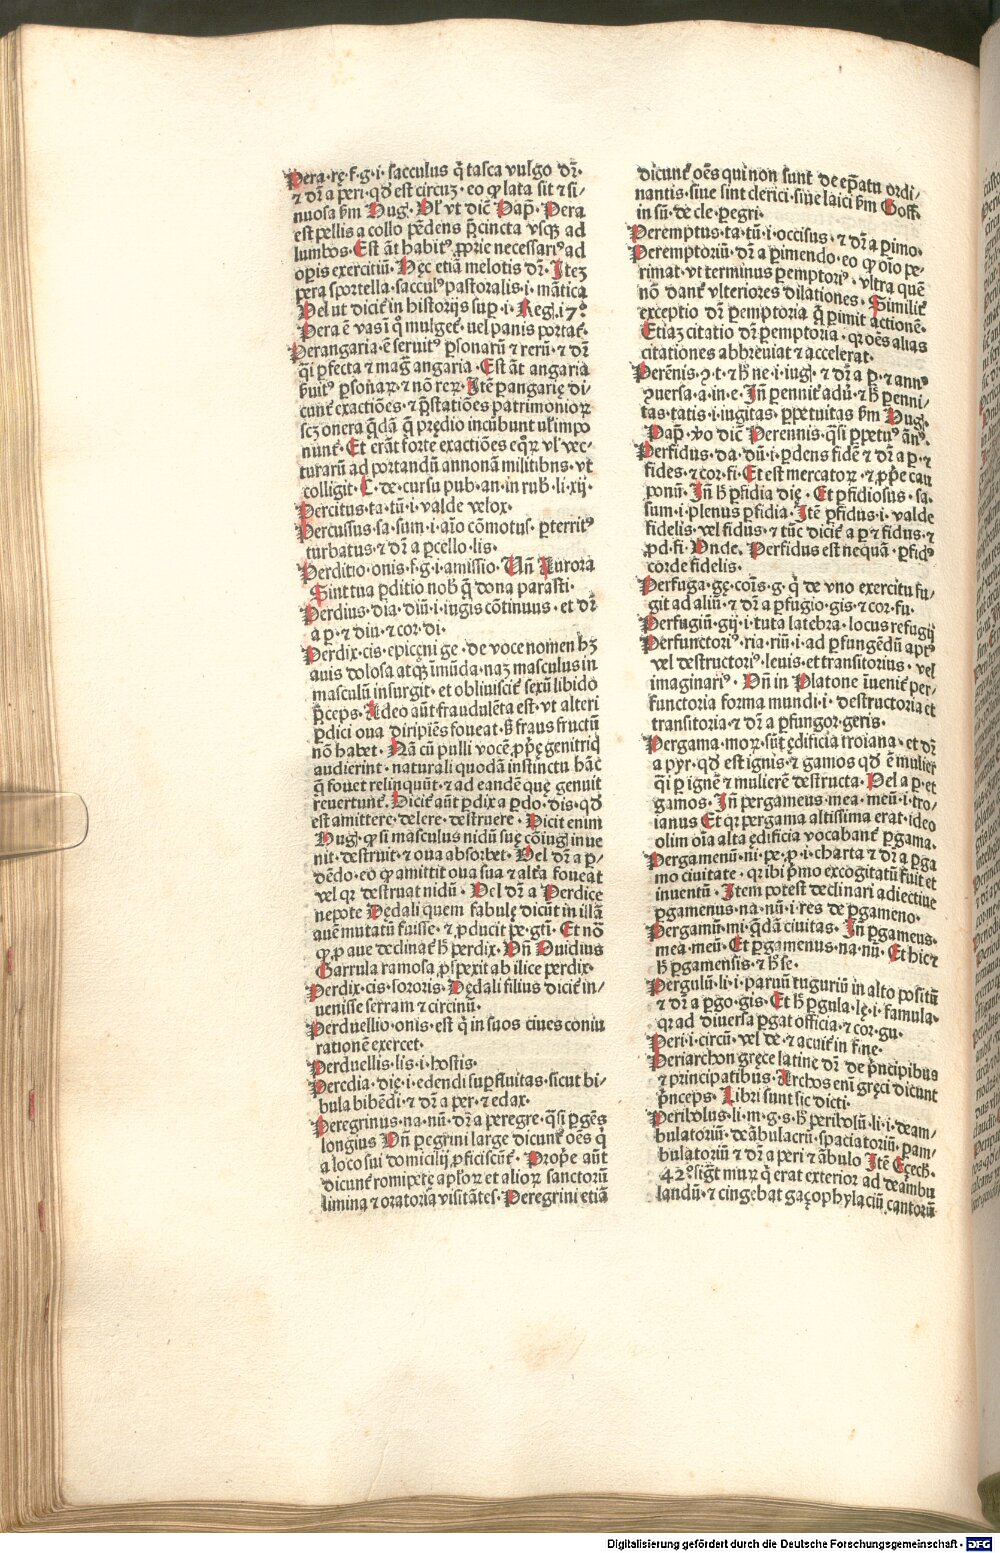 Pera·rę·f·g·i· sacculus q̄ tasca vulgo dr̄·
⁊ dr̄ a ꝑeri·qđ est circuꝫ·eo ꝙ lata sit ⁊ si/
nuosa ẜm Hug· Vl̓ vt dic̄ Pap̄· Pera
est pellis a collo pēdens p̄cincta vsqꝫ ad
lumbos· Est āt habit⁹ ꝓprie necessari⁹ ad
opis exercitiū· Hęc etiā melotis dr̄· Iteꝫ
ꝑera sportella·saccul⁹ pastoralis·i·mātica
Vel ut dicit̄ in historijs suꝑ·i·Reg·17°
Pera ē vas ī q̊ mulget̄·uel panis portat̄·
Perangaria·ē seruit⁹ ꝑsonarū ⁊ rerū·⁊ dr̄
q̄i ꝑfecta ⁊ maḡ angaria· Est āt angaria
ẜuit⁹ ꝑsonaꝝ·⁊ nō reꝝ· Itē ꝑangarię di/
cunt̄ exactiōes·⁊ p̄statiōes patrimonioꝝ
scꝫ onera q̄dā q̄ prędio incūbunt ul̓ impo
nunt̄· Et erāt forte exactiōes eq̊ꝝ vl̓ vec/
turarū ad portandū annonā militibns·vt
colligit̄· C·de·cursu pub·an·in rub̄·li·xij·
Percitus·ta·tū·i·valde velox·
Percussus·sa·sum·i·aīo cōmotus·ꝑterrit⁹
turbatus·⁊ dr̄ a ꝑcello·lis·
Perditio·onis·f·g·i·amissio· Vn̄ Aurora
Sint tua ꝑditio nob̄ q̄ dona parasti·
Perdius·dia·diū·i·iugis cōtinuus·et dr̄
a ꝑ·⁊ diu·⁊ cor·di·
Perdix·cis·epicęni ge·de voce nomen hꝫ
auis dolosa atqꝫ īmūda·naꝫ masculus in
masculū insurgit·et obliuiscit̄ sexū libido
p̄ceps· Adeo aūt fraudulēta est·vt alteri
ꝑdici oua diripiēs foueat·ẜ fraus fructū
nō habet· Nā cū pulli vocē ꝓprię genitricꝭ
audierint·naturali quodā instinctu hāc
q̄ fouet relinquūt·⁊ ad eandē quę genuit
reuertunt̄· Dicit̄ aūt ꝑdix a ꝑdo·dis·qđ
est amittere·delere·destruere· Dicit enim
Hug·ꝙ si masculus nidū suę cōiugi inue
nit·destruit·⁊ oua absorbet· Vel dr̄ a ꝑ/
dēdo·eo ꝙ amittit oua sua ⁊ alťa foueat
vel qꝛ destruat nidū· Vel dr̄ a Perdice
nepote Dędali quem fabulę dicūt in illā
auē mutatū fuisse·⁊ ꝓducit pe·gtī· Et nō
ꝙ ꝓ aue declinat̄ h̄ perdix· Vn̄ Ouidius
Garrula ramosa ꝓspexit ab ilice perdix·
Perdix·cis·sororis·Dędali filius dicit̄ in/
uenisse serram ⁊ circinū·
Perduellio·onis·est q̄ in suos ciues coniu
rationē exercet·
Perduellis·lis·i·hostis·
Peredia·dię·i·edendi suꝑfluitas·sicut bi/
bula bibēdi·⁊ dr̄ a per·⁊ edax·
Peregrinus·na·nū·dr̄ a peregre·q̄si ꝑgēs
longius Vn̄ ꝑegrini large dicunt̄ oēs q̄
a loco sui domicilij ꝓficiscunt̄· Proꝑie aūt
dicunt̄ romipetę apl̓oꝝ et alioꝝ sanctorū
limina ⁊ oratoria visitātes· Peregrini etiā
dicunt̄ oēs qui non sunt de eꝑ̄atu ordi/
nantis·siue sint clerici·siue laici ẜm Goff·
in sū·de cle·ꝑegri·
Peremptus·ta·tū·i·occisus·⁊ dr̄ a ꝑimo·
Peremptoriū·dr̄ a ꝑimendo·eo ꝙ oīo pe/
rimat·vt terminus ꝑemptori⁹·vltra quē
nō dant̄ vlteriores dilationes· Similit̄
exceptio dr̄ ꝑemptoria q̄ ꝑimit actionē·
Etiaꝫ citatio dr̄ ꝑemptoria·qꝛ oēs alias
citationes abbreuiat ⁊ accelerat·
Perēnis·ꝯ·t·⁊ h̄ ne·i·iugl̓·⁊ dr̄ a ꝑ·⁊ ann⁹
ꝯuersa·a·in·e· In̄ ꝑennit̄ adū·⁊ h̄ ꝑenni/
tas·tatis·i·iugitas·ꝑpetuitas ẜm Hug·
Pap̄·vo dic̄ Perennis·q̄si ꝑpetu⁹ ān⁹·
Perfidus·da·dū·i·ꝑdens fidē ⁊ dr̄ a ꝑ·⁊
fides·⁊ cor·fi· Et est mercatoꝝ·⁊ ꝓpe cau
ponū· In̄ h̄ ꝑfidia dię· Et ꝑfidiosus·sa·
sum·i·plenus ꝑfidia· Itē ꝑfidus·i·valde
fidelis·vel fidus·⁊ tūc dicit̄ a ꝑ ⁊ fidus·⁊
ꝓd·fi· Vnde· Perfidus est nequā·ꝑfid⁹
corde fidelis·
Perfuga·gę·coīs·g·q̄ de vno exercitu fu/
git ad aliū·⁊ dr̄ a ꝑfugio·gis·⁊ cor·fu·
Perfugiū·gij·i·tuta latebra·locus refugij
Perfunctori⁹·ria·riū·i·ad ꝑfungēdū apt⁹
vel destructori⁹·leuis·et transitorius·vel
imaginari⁹· Vn̄ in Platone īuenit̄ per/
functoria forma mundi·i·destructoria et
transitoria·⁊ dr̄ a ꝑfungor·geris·
Pergama·moꝝ·sūt ędificia troiana·et dr̄
a pyr·qđ est ignis·⁊ gamos qđ ē mulier
q̄i ꝑ ignē ⁊ mulierē destructa· Vel a ꝑ·et
gamos· In̄ pergameus·mea·meū·i·tro/
ianus Et qꝛ pergama altissima erat·ideo
olim oīa alta ędificia vocabant̄ ꝑgama·
Pergamenū·ni·pe·ꝓ·i·charta ⁊ dr̄ a ꝑga
mo ciuitate·qꝛ ibi p̄mo excogitatū fuit et
inuentū· Item potest declinari adiectiue
ꝑgamenus·na·nū·i·res de ꝑgameno·
Pergamū·mi·q̄dā ciuitas· In̄ ꝑgameus·
mea·meū· Et ꝑgamenus·na·nū· Et hic ⁊
h̄ ꝑgamensis·⁊ h̄ se·
Pergulū·li·i·paruū tuguriū in alto positū
⁊ dr̄ a ꝑgo·gis· Et h̄ ꝑgula·lę·i·famula·
qꝛ ad diuersa ꝑgat officia·⁊ cor·gu·
Peri·i·circū·vel de·⁊ acuit̄ in fine·
Periarchon gręce latine dr̄ de p̄ncipibus
⁊ principatibus· Archos enī gręci dicunt
p̄nceps· Libri sunt sic dicti·
Peribolus·li·m·g·s·h̄ peribolū·li·i·deam/
bulatoriū·deābulacrū·spaciatoriū·ꝑam/
bulatoriū ⁊ dr̄ a peri ⁊ ābulo Itē Ezech̄·
42°·sigt̄ muꝝ q̄ erat exterior ad deābu
landū·⁊ cingebat gaçophylaciū cantorū
Digitalisierung gefördert durch die Deutsche Forschungsgemeinschaft - DFG